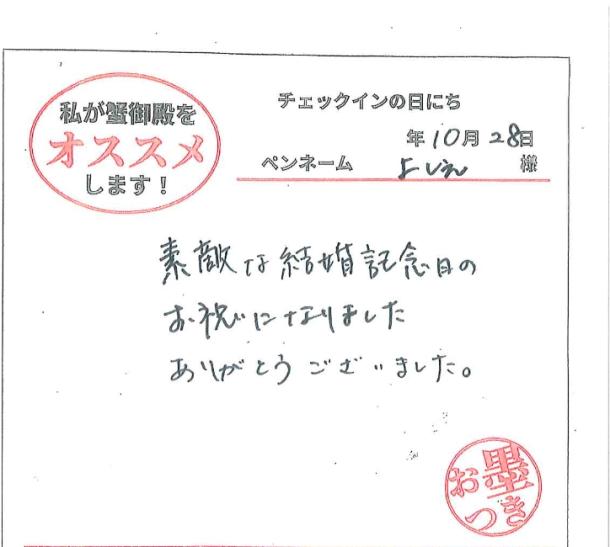 私が蟹御殿を
オススメ
します！
チェックインの日にち
年10月28日
ペンネーム よしえ 様
素敵な結婚記念日の
お祝いになりました
ありがとうございました。
お墨
つき